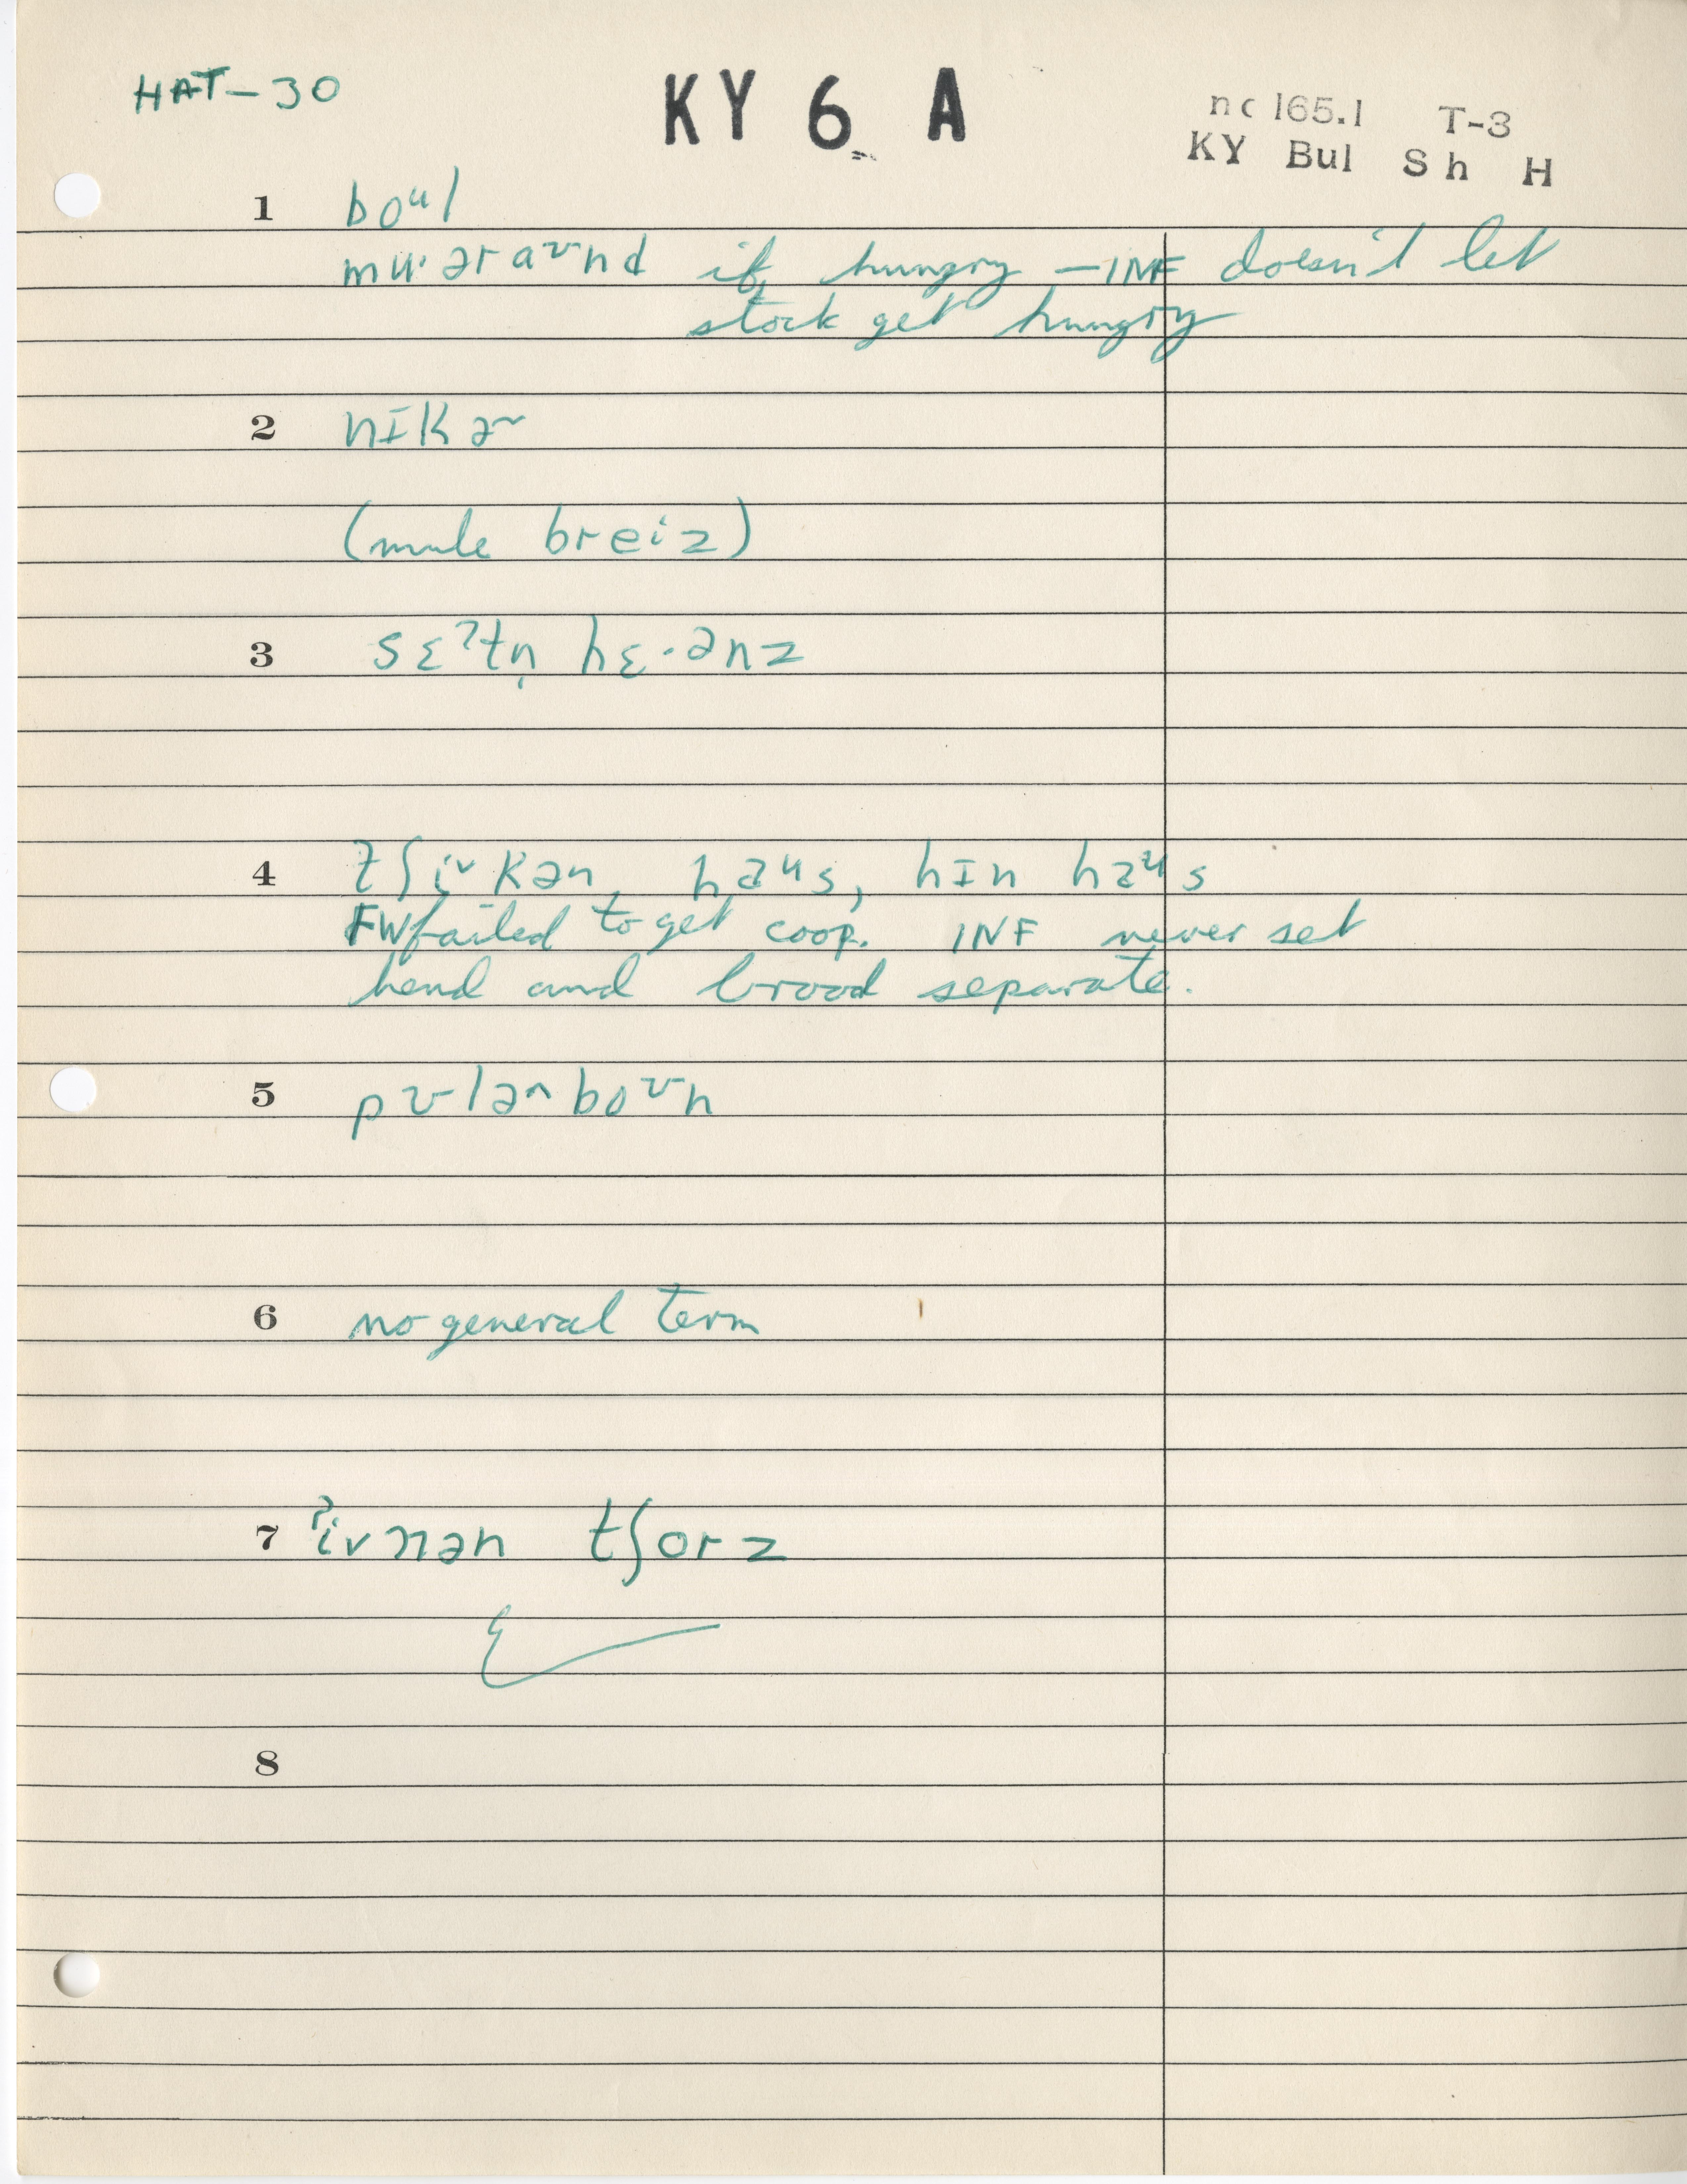 HAT-30 KY 6 A nc 165.1 T-3
KY Bul Sh H
1 boᵘl
mʉ·əraᶷnd if hungry — INF doesn't let
stock get hungry
2 nɪkɚ
(mule breⁱz)
3 sɛˀtn̩ hɛ·ənz
4 tʃɪᵛkən haᵘs, hɪn haᵘs
FW failed to get coop. INF never set
hend and brood separate.
5 pʊlənboᶷn
6 no general term
7 tʃorz
8